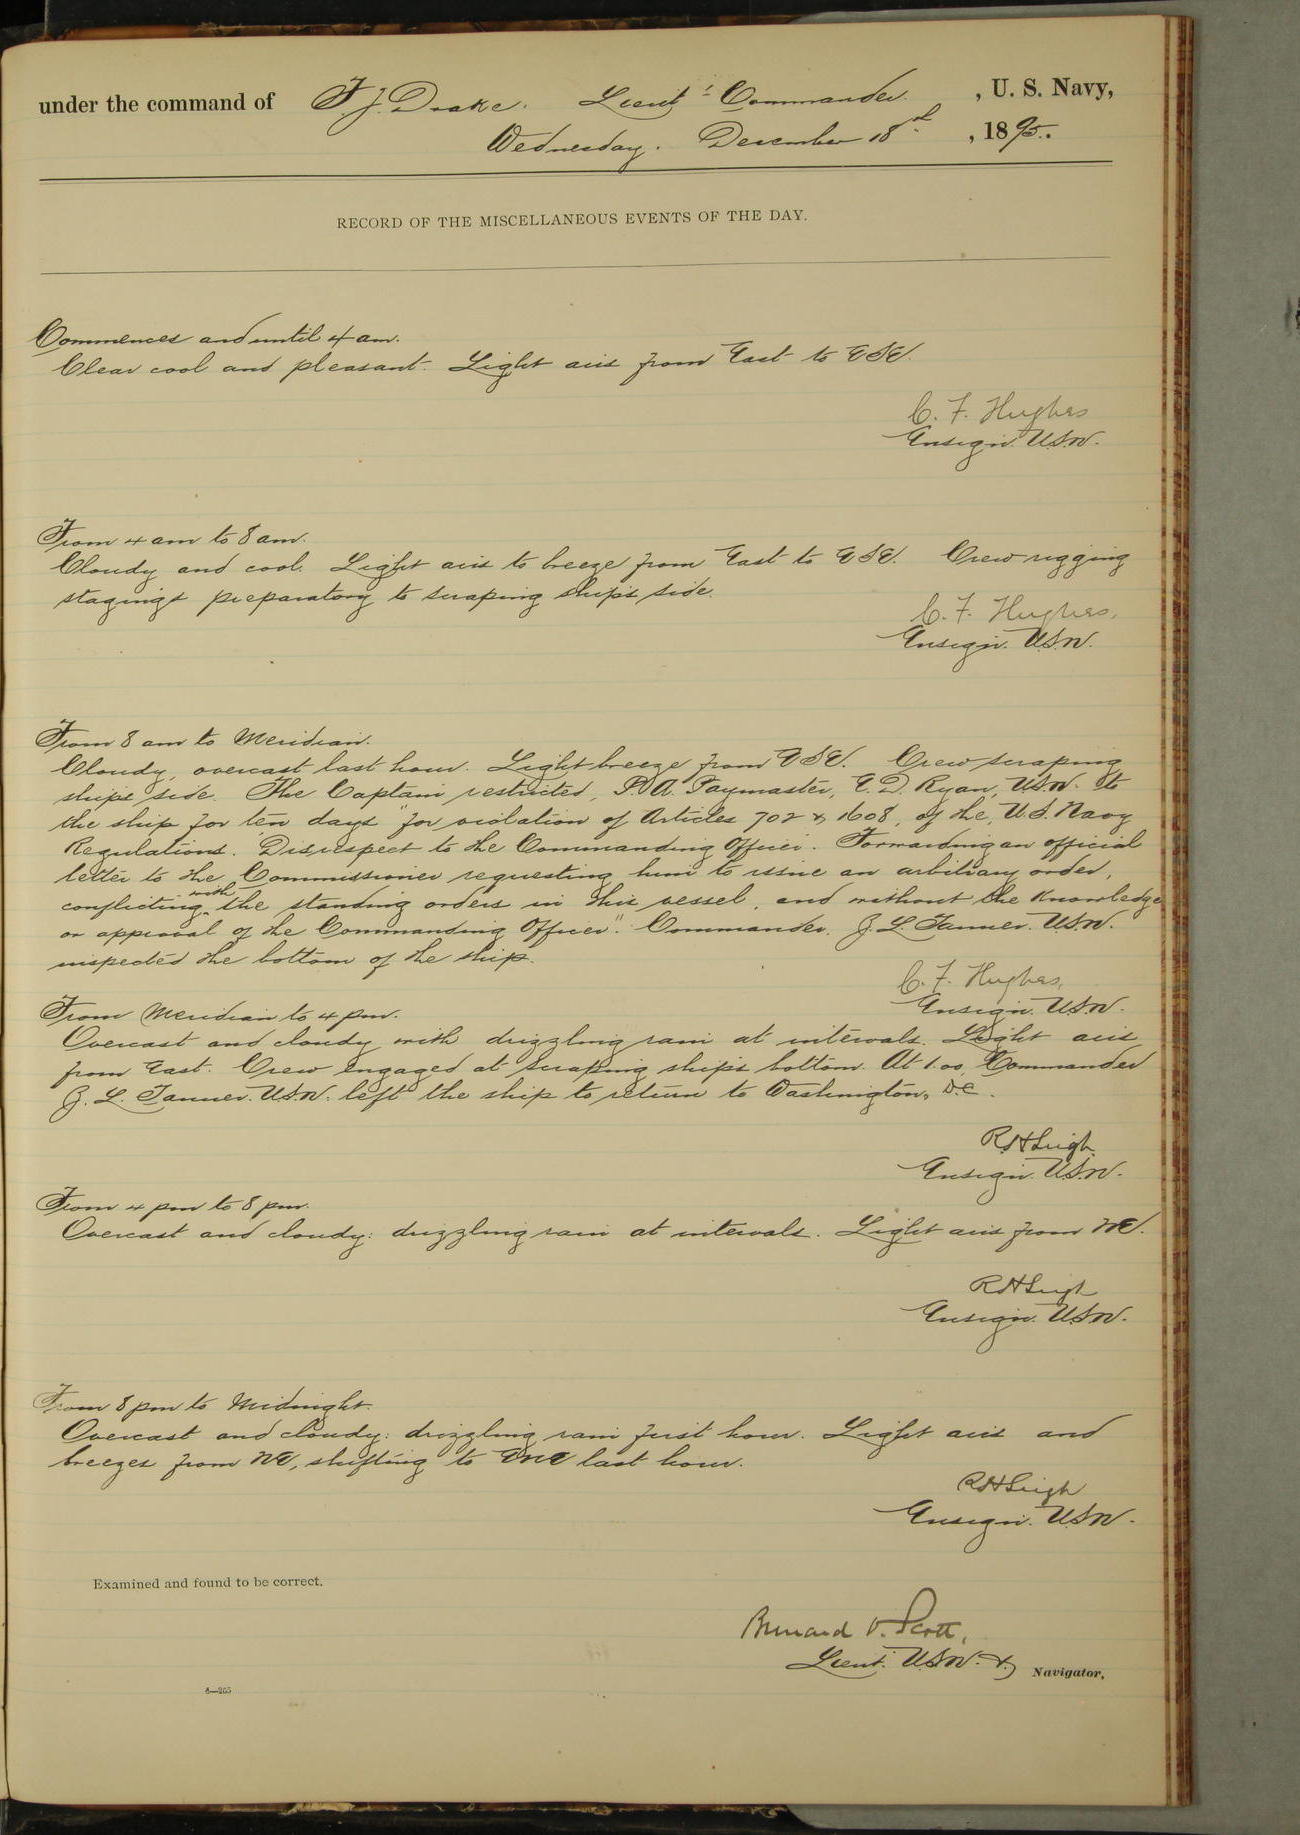 under the command of F. J. Drake. Lieut. Commander. , U. S. Navy,
Wednesday. December 18th , 1895.
RECORD OF THE MISCELLANEOUS EVENTS OF THE DAY.
Commences and until 4 am.
Clear cool and pleasant. Light airs from East to ESE.
C. F. Hughes
Ensign. U.S.N.
From 4 am to 8 am.
Cloudy and cool. Light airs to breeze from East to ESE. Crew rigging
stagings preparatory to scraping ship's side.
C. F. Hughes,
Ensign. U.S.N.
From 8 am to Meridian.
Cloudy, overcast last hour. Light breeze from ESE. Crew scraping
ship's side. The Captain restricted, P.A. Paymaster, E. D. Ryan, U.S.N. to
the ship for ten days "for violation of Articles 702 & 1608, of the, U.S. Navy
Regulations. Disrespect to the Commanding Officer. Forwarding an official
letter to the Commissioner requesting him to issue an arbitrary order,
conflicting with the standing orders in this vessel, and without the knowledge
or approval of the Commanding Officer". Commander. Z. L. Tanner. U.S.N.
inspected the bottom of the ship.
C. F. Hughes,
Ensign. U.S.N.
From Meridian to 4 pm.
Overcast and cloudy with drizzling rain at intervals. Light airs
from East. Crew engaged at scraping ship's bottom. At 1.00, Commander
Z. L. Tanner. U.S.N. left the ship to return to Washington, D.C.
R. H. Leigh
Ensign. U.S.N.
From 4 pm to 8 pm.
Overcast and cloudy: drizzling rain at intervals. Light airs from NE.
R. H. Leigh
Ensign. U.S.N.
From 8 pm to Midnight.
Overcast and cloudy: drizzling rain first hour. Light airs and
breezes from NE, shifting to ENE last hour.
R. H. Leigh
Ensign. U.S.N.
Examined and found to be correct.
Bernard O. Scott,
Lieut. U.S.N. & Navigator.
6—265